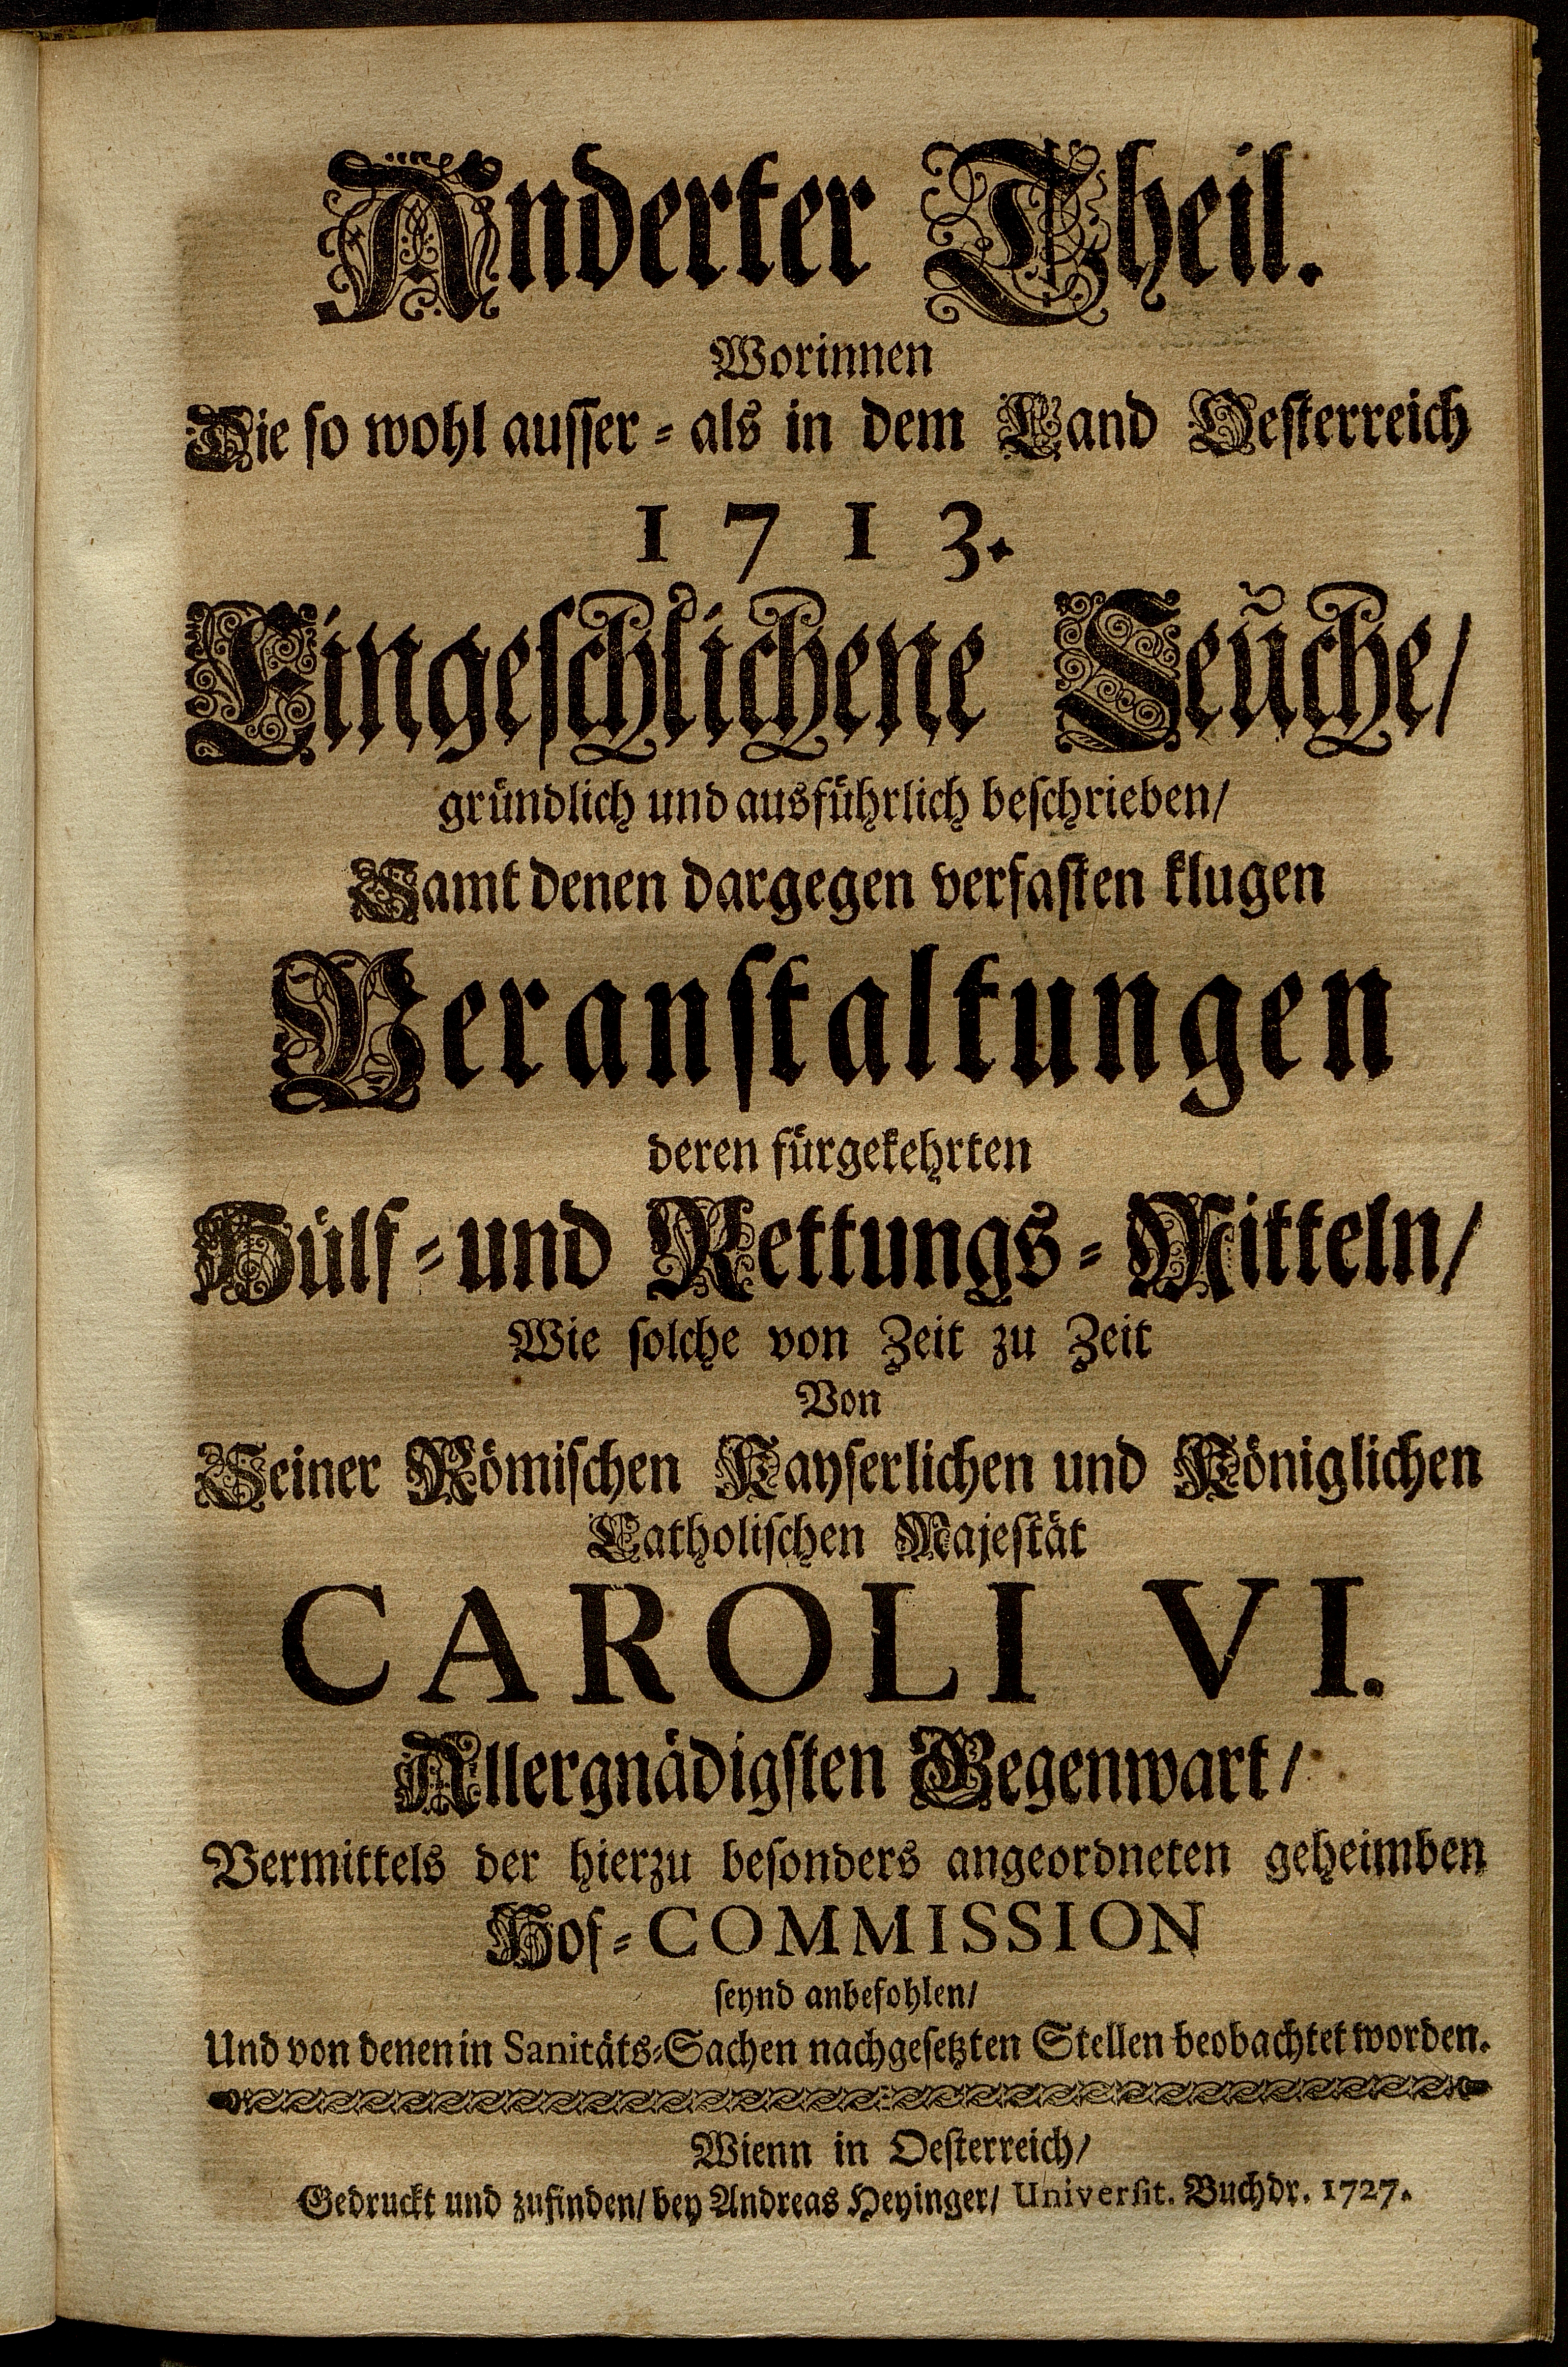 Anderter Theil.
Worinnen
Die so wohl ausser- als in dem Land Oesterreich
1713.
Eingeschlichene Seüche/
gründlich und ausführlich beschrieben/
Samt denen dargegen verfasten klugen
Veranstaltungen
deren fürgekehrten
Hülf- und Rettungs-Mitteln/
Wie solche von Zeit zu Zeit
Von
Seiner Römischen Kayserlichen und Königlichen
Catholischen Majestät
CAROLI VI.
Allergnädigsten Gegenwart/
Vermittels der hierzu besonders angeordneten geheimben
Hof-COMMISSION
seynd anbefohlen/
Und von denen in Sanitäts-Sachen nachgesetzten Stellen beobachtet worden.
Wienn in Oesterreich/
Gedruckt und zufinden/ bey Andreas Heyinger/ Universit. Buchdr. 1727.